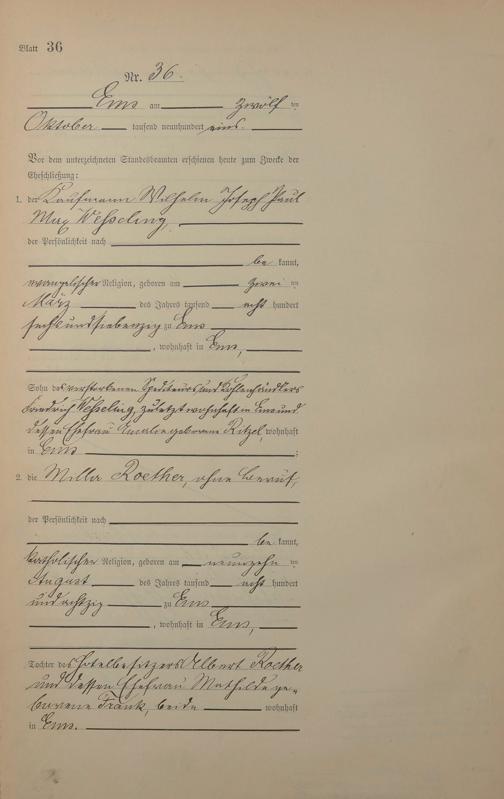 Blatt 36
Nr. 36.
Ems am zwölften
Oktober tausend neunhundert eins.
Vor dem unterzeichneten Standesbeamten erschienen heute zum Zwecke der
Eheschließung:
1. der Kaufmann Wilhelm Joseph Paul
Max Wesseling,
der Persönlichkeit nach
be kannt,
evangelischer Religion, geboren am zwei ten
März des Jahres tausend acht hundert
sechsundsiebenzig zu Ems
, wohnhaft in Ems,
Sohn des verstorbenen Spediteurs und Kohlenhändlers
Friedrich Wesseling, zuletzt wohnhaft in Ems und
dessen Ehefrau Amalie geborene Ritzel, wohnhaft
in Ems ;
2. die Milla Roether, ohne Beruf,
der Persönlichkeit nach
be kannt,
katholischer Religion, geboren am neunzehn ten
August des Jahres tausend acht hundert
undachtzig zu Ems
, wohnhaft in Ems,
Tochter des Hotelbesitzers Albert Roether
und dessen Ehefrau Mathilde ge-
borene Frank, beide wohnhaft
in Ems.